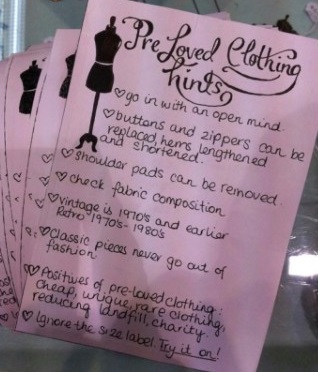 Pre Loved Clothing
hints
♡ go in with an open mind.
♡ buttons and zippers can be
replaced, hems lengthened
and shortened.
♡ shoulder pads can be removed.
♡ check fabric composition
♡ vintage is 1970's and earlier
Retro 1970's - 1980's
♡ Classic pieces never go out of
fashion
♡ Positives of pre-loved clothing:
cheap, unique, rare clothing,
reducing landfill, charity.
♡ Ignore the size label. Try it on!